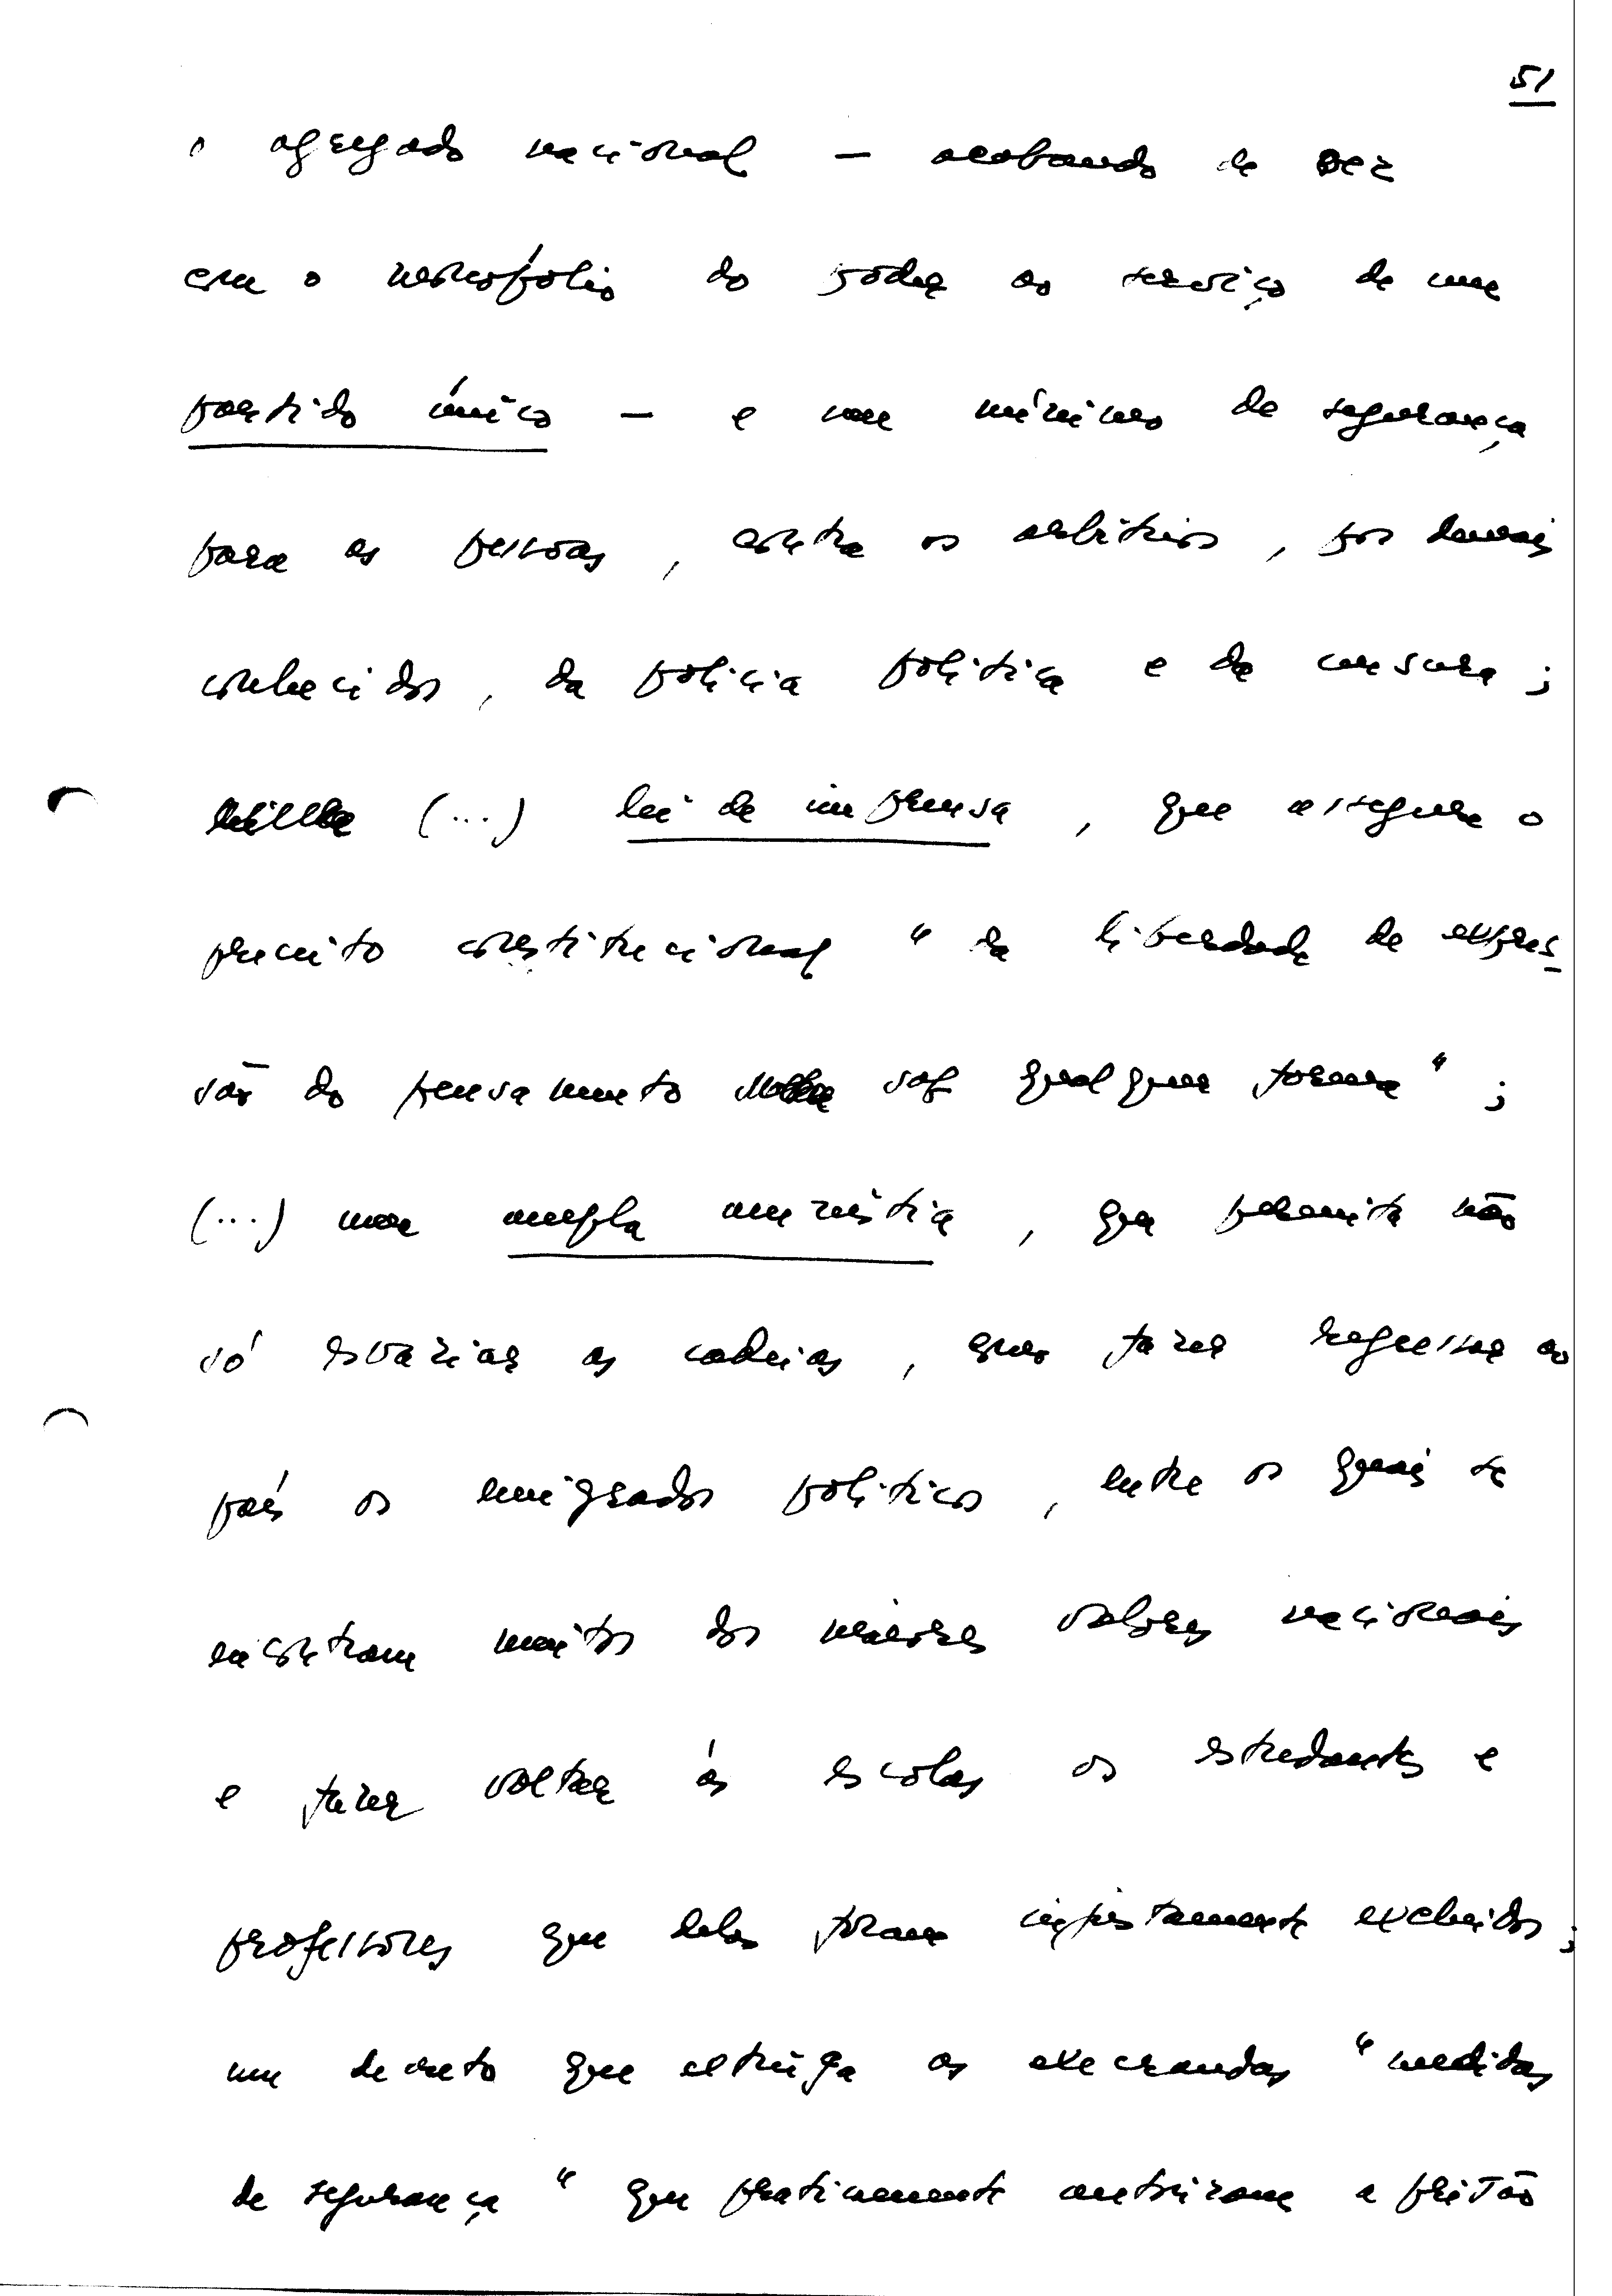 51
o agregado nacional — acabando de vez
com o monopólio do poder ao serviço de um
partido único — e um mínimo de segurança
para as pessoas, contra os arbítrios, por demais
conhecidos, da polícia política e da censura;
(...) lei de imprensa, que assegure o
preceito constitucional "da liberdade de expres-
são do pensamento sob qualquer forma";
(...) uma ampla amnistia, que permita não
só esvaziar as cadeias, mas fazer regressar ao
país os emigrados políticos, entre os quais se
encontram muitos dos maiores valores nacionais
e fazer voltar às escolas os estudantes e
professores que delas foram injustamente excluídos;
um decreto que extinga as execrandas "medidas
de segurança" que praticamente autorizam a prisão